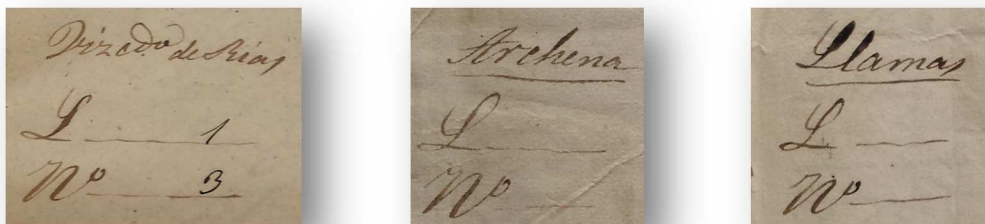 Vizcdo de Rias
L 1
Nº 3
Archena
L
Nº
Llamas
L
Nº